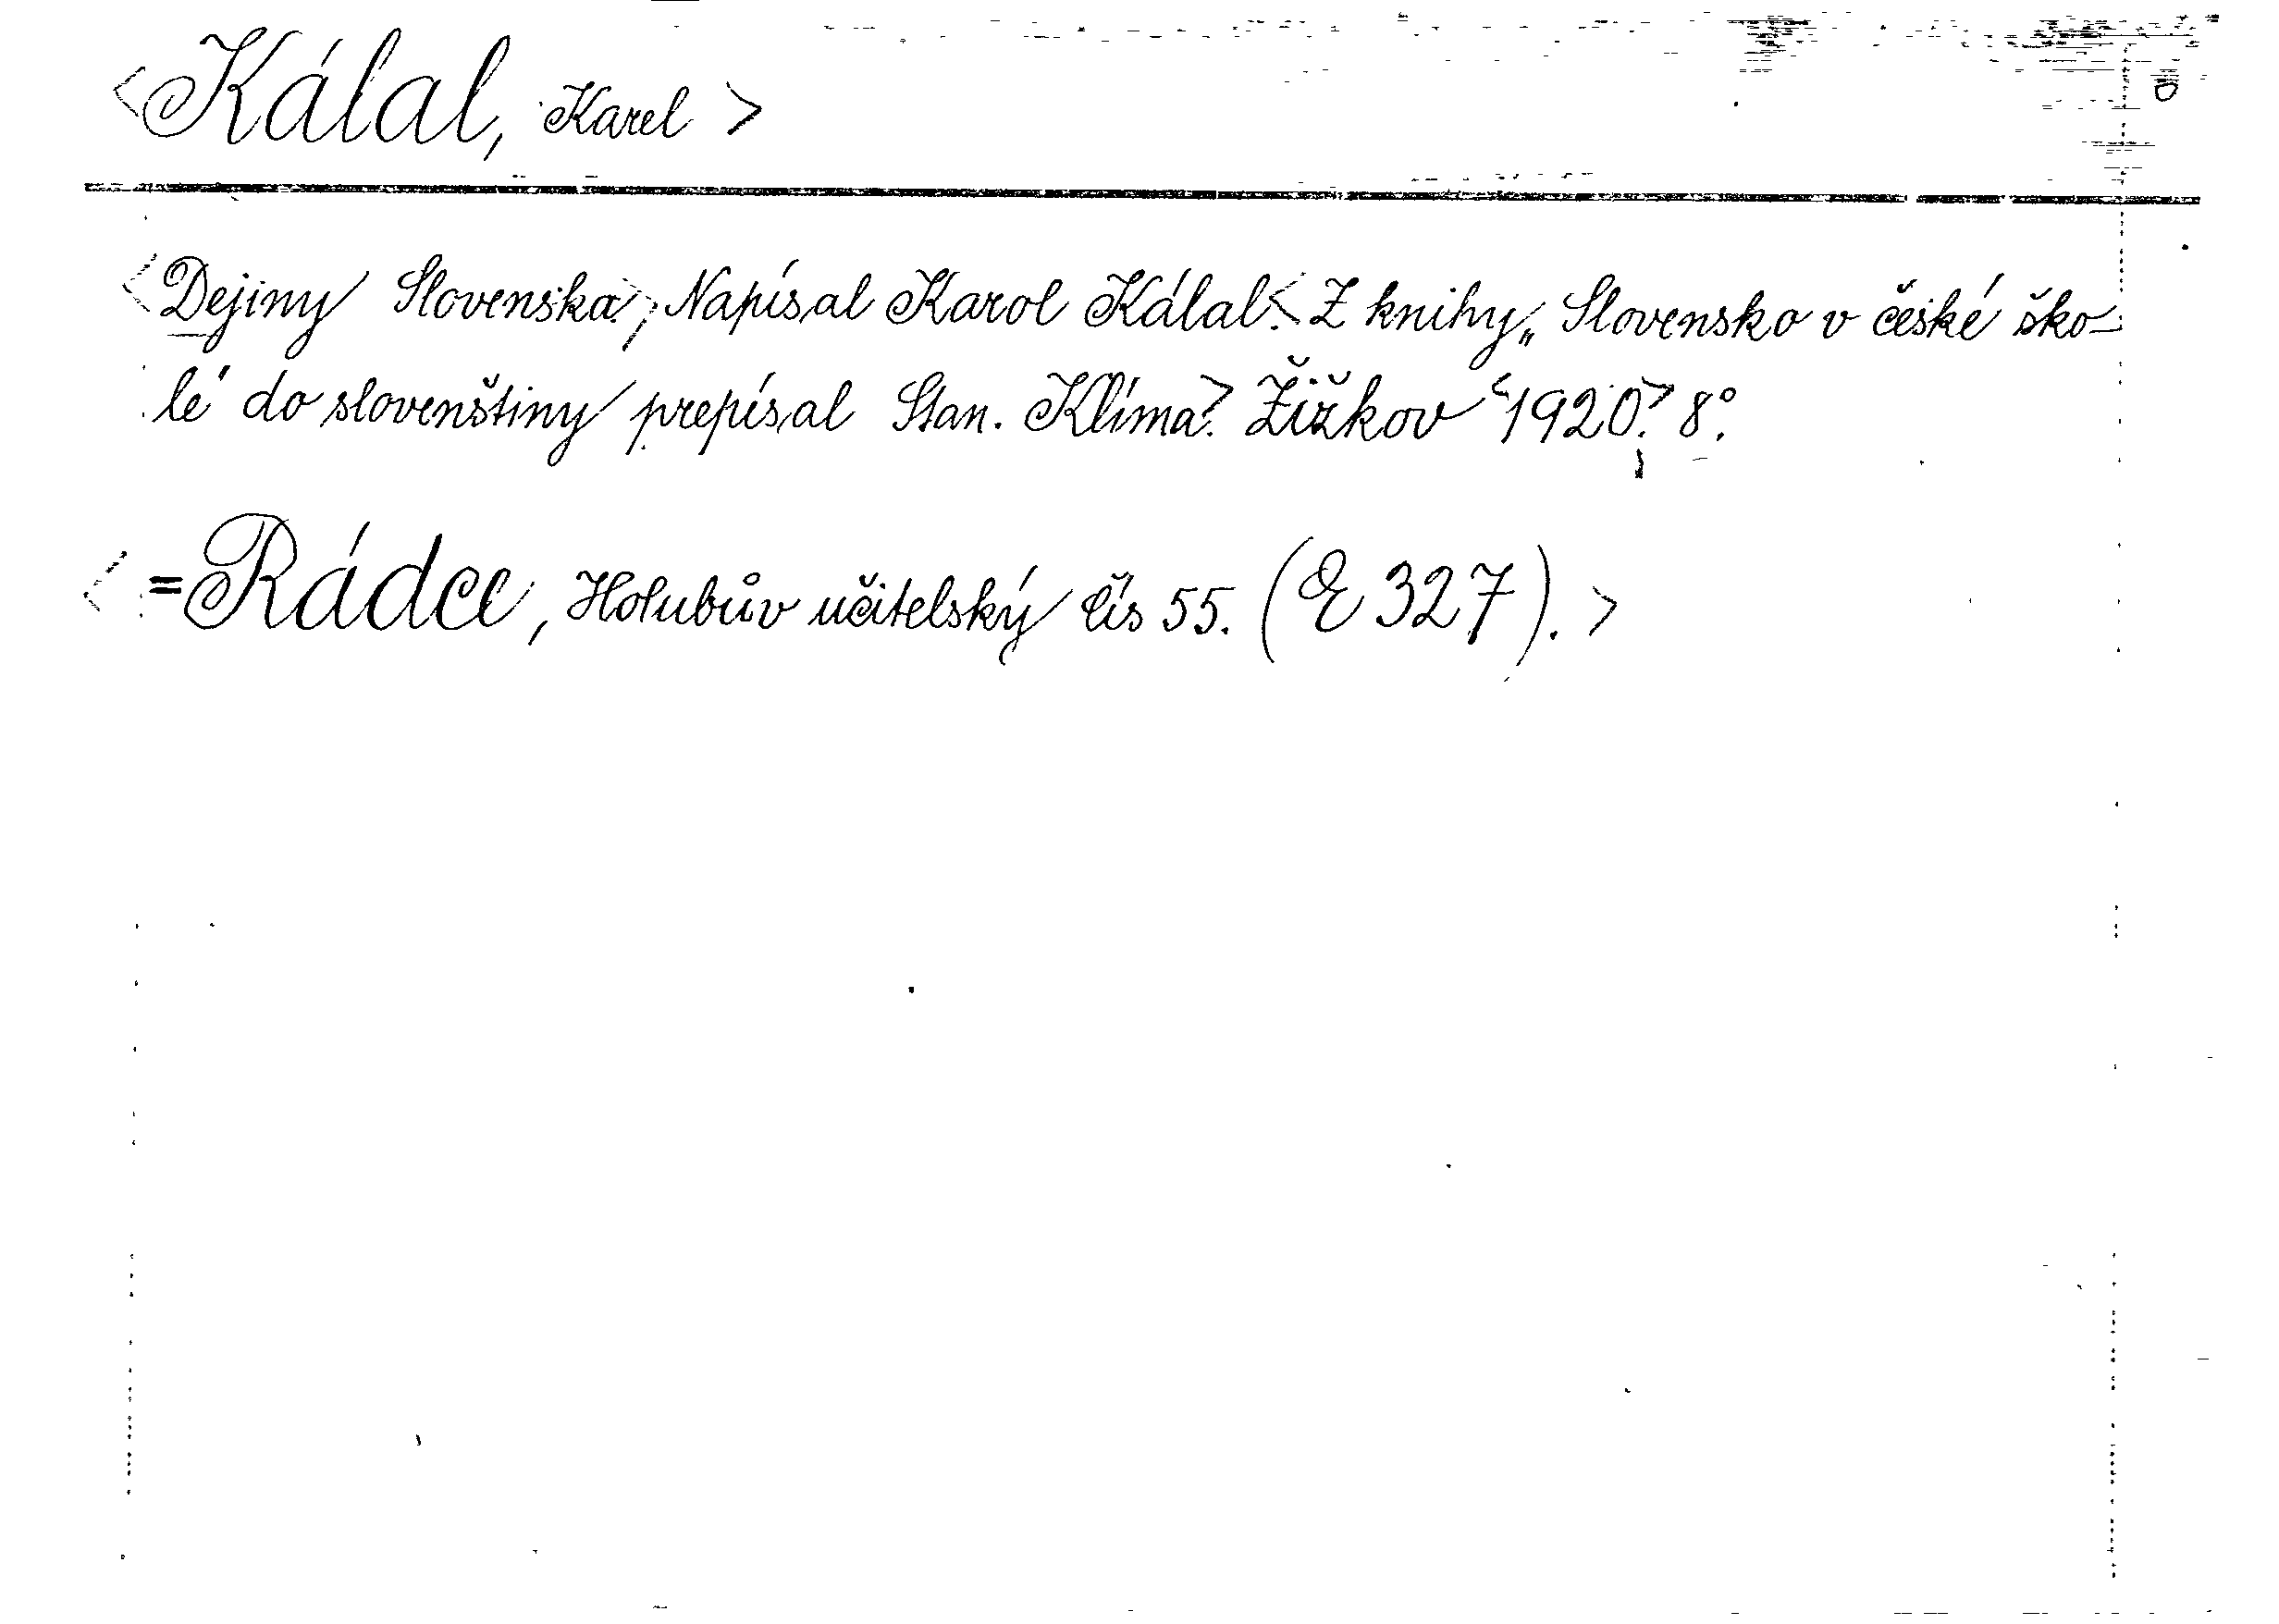 <Kálal, Karel>
<Dejiny Slovenska.> Napísal Karol Kálal.< Z knihy „Slovensko v české ško-
lé do slovenštiny prepísal Stan. Klíma.> Žižkov <1920.> 8°.
<=Rádce, Holubův učitelský čís 55. (E 327).>